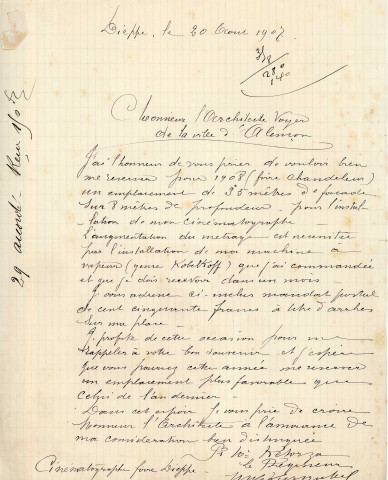 Dieppe, le 20 Aout 1907
Monsieur l'Architecte Voyer
de la ville d'Alençon
J'ai l'honneur de vous prier de vouloir bien
me reserver pour 1908 (foire Chandeleur)
un emplacement de 35 mètres de facade
sur 8 mètres de profondeur pour l'instal-
lation de mon cinématographe
L'augmentation du metrage est necessitée
par l'installation de ma machine à
vapeur (genre Kobelkoff) que j'ai commandée
et que je dois recevoir dans un mois -
Je vous adresse ci-inclus mandat postal
de cent cinquante francs à titre d'arrhes
sur ma place -
Je profite de cette occasion pour me
rappeler à votre bon souvenir et j'espère
que vous pourrez cette année me reserver
un emplacement plus favorable que
celui de l'an dernier -
Dans cet espoir je vous prie de croire
Monsieur l'Architecte à l'assurance de
ma consideration bien distinguée
le Régisseur
Cinématographe foire Dieppe -
29 accordé -